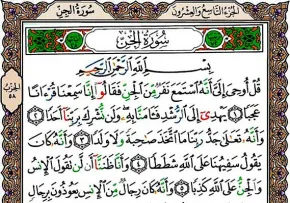 سُورَةُ الجِنِّ
الجُزْءُ التَّاسِعُ وَالعِشْرُونَ
سُورَةُ الجِنِّ
بِسْمِ اللَّهِ الرَّحْمَٰنِ الرَّحِيمِ
قُلْ أُوحِىَ إِلَىَّ أَنَّهُ ٱسْتَمَعَ نَفَرٌ مِّنَ ٱلْجِنِّ فَقَالُوٓا۟ إِنَّا سَمِعْنَا قُرْءَانًا
عَجَبًا ١ يَهْدِىٓ إِلَى ٱلرُّشْدِ فَـَٔامَنَّا بِهِۦ وَلَن نُّشْرِكَ بِرَبِّنَآ أَحَدًا ٢
وَأَنَّهُۥ تَعَٰلَىٰ جَدُّ رَبِّنَا مَا ٱتَّخَذَ صَٰحِبَةً وَلَا وَلَدًا ٣ وَأَنَّهُۥ كَانَ
يَقُولُ سَفِيهُنَا عَلَى ٱللَّهِ شَطَطًا ٤ وَأَنَّا ظَنَنَّآ أَن لَّن تَقُولَ ٱلْإِنسُ
وَٱلْجِنُّ عَلَى ٱللَّهِ كَذِبًا ٥ وَأَنَّهُۥ كَانَ رِجَالٌ مِّنَ ٱلْإِنسِ يَعُوذُونَ بِرِجَالٍ